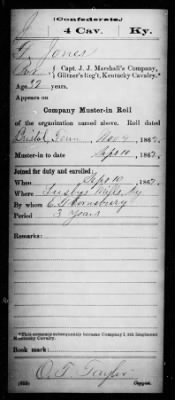 J
(Confederate.)
4 Cav. Ky.
G Jones
Capt. J. J. Marshall's Company,
Giltner's Reg't, Kentucky Cavalry.*
Age 22 years.
Appears on
Company Muster-in Roll
of the organization named above. Roll dated
Bristol, Tenn Nov 7, 186
Muster-in to date Sept 10, 1862.
Joined for duty and enrolled:
When Sept 10, 1862.
Where Ky
By whom C Thornsbury
Period 3 years
Remarks:
*This company subsequently became Company I, 4th Regiment
Kentucky Cavalry.
Book mark:
O. T. Taylor
Copyist.